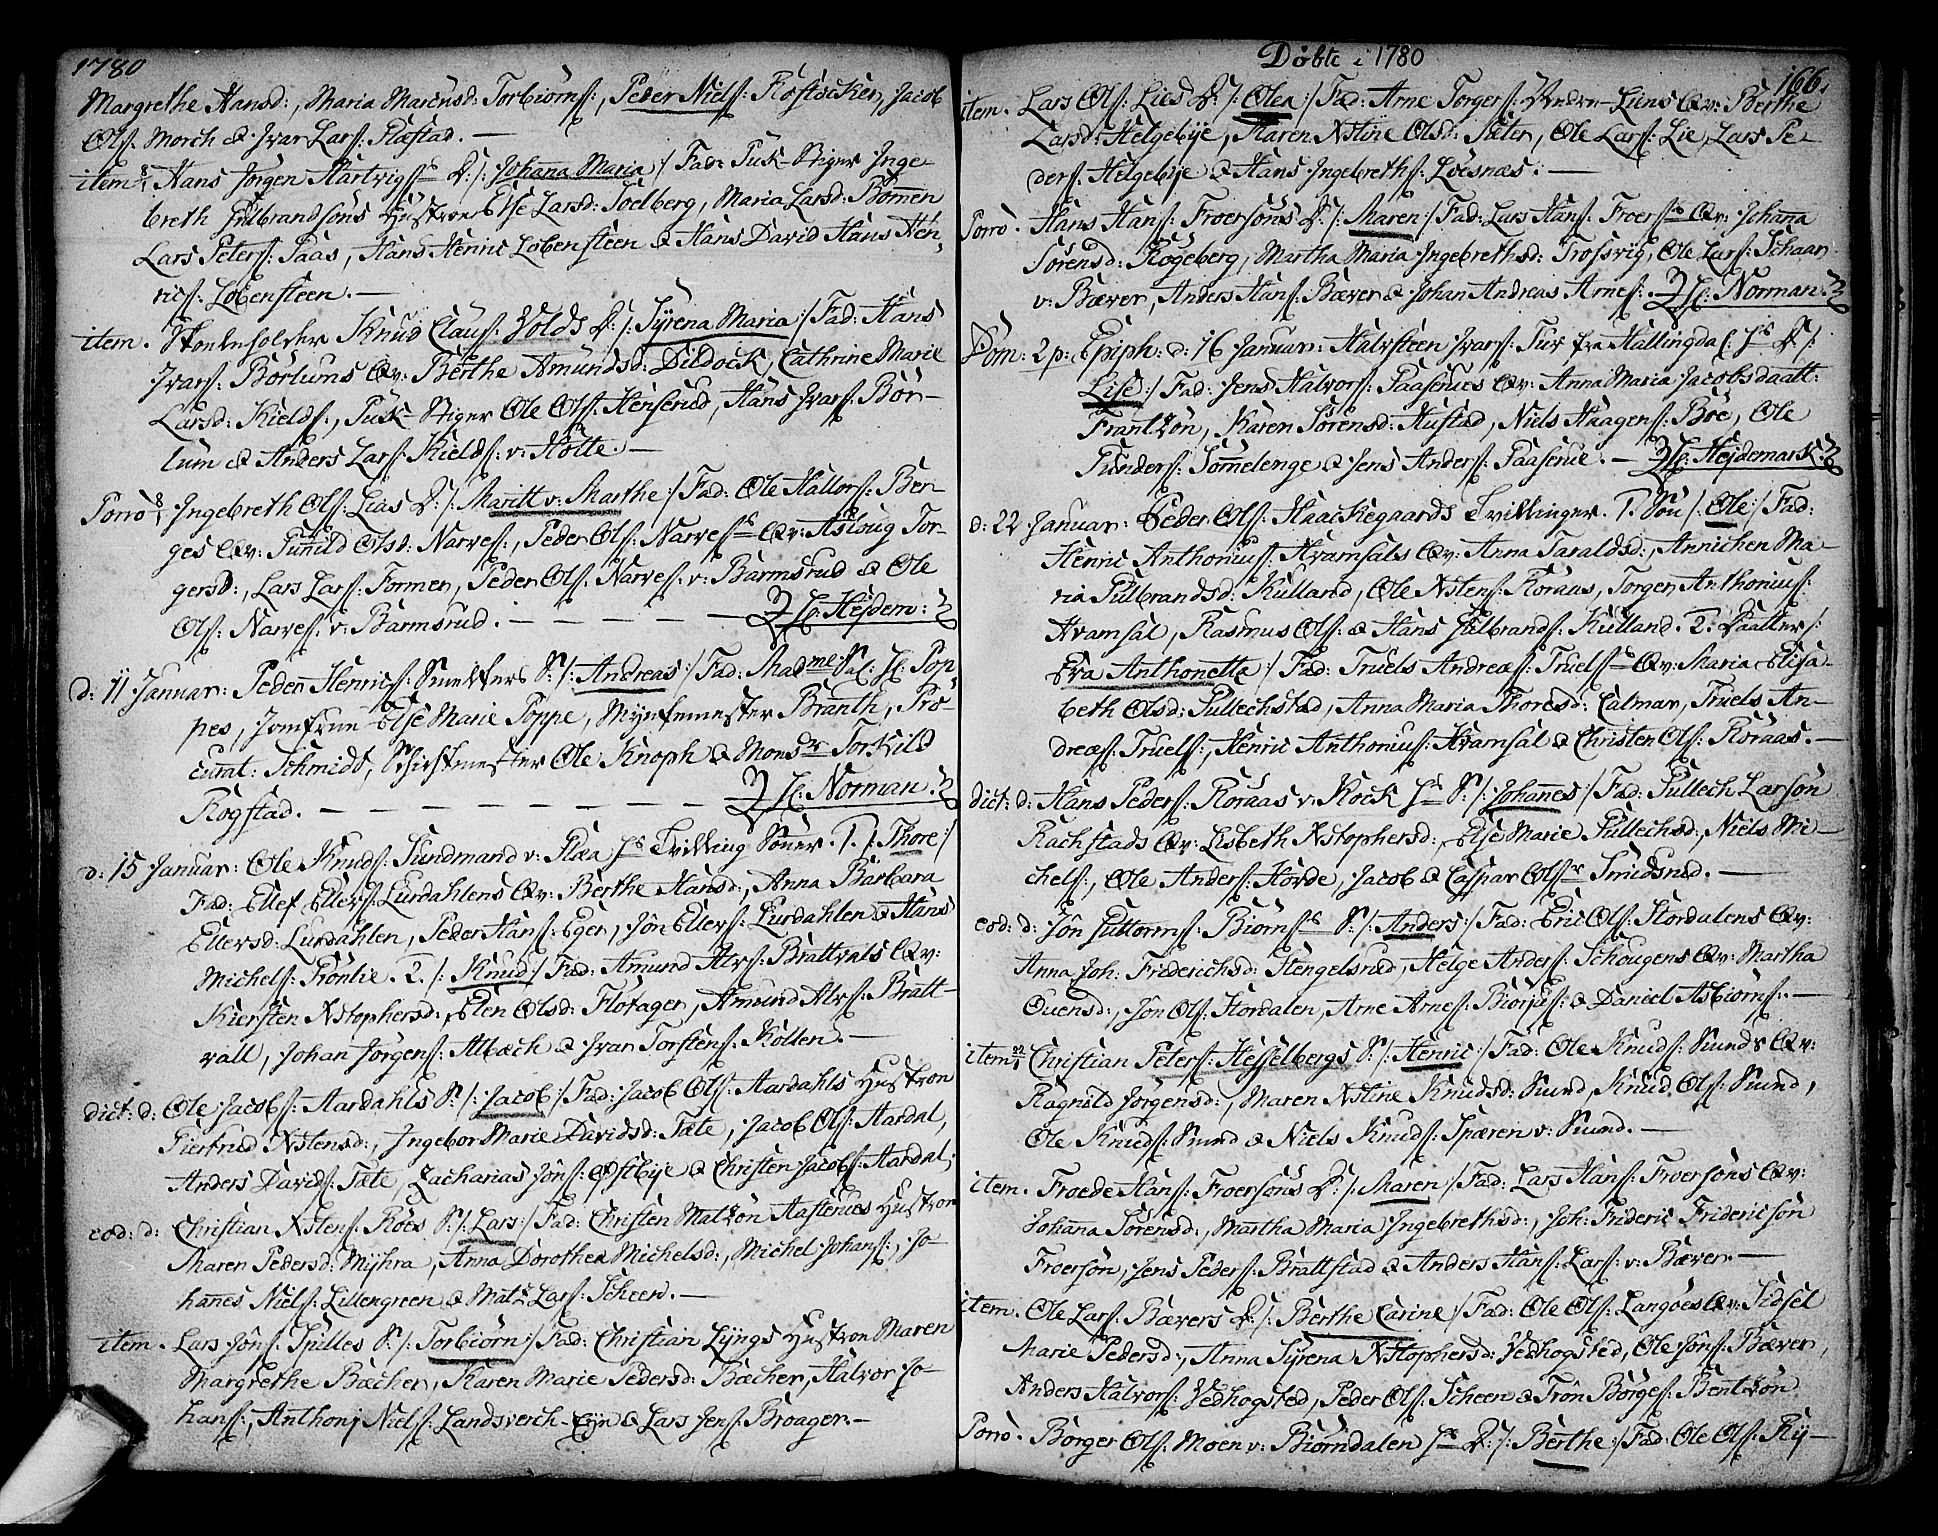 1780
Margrethe Hansd:, Maria Marcusd: Torbiörns:, Peder Niels: Kofstocker, Jacob
Ols: Morch & Ivar Lars: Flastad. —
item 8/1 Hans Jørgen Hartvigss D: /: Johana Maria :/ Fad: Pusk Stiger Inge-
breth Gulbrandsøns Hustroe Else Larsd: Soelberg, Maria Larsd: Bönnen
Lars Peters: Saas, Hans Henric Lobensteen & Hans David Hans Hen-
rics: Lobensteen. —
item. Skoeleholder Knud Claus: Volds D: /: Syrena Maria :/ Fad: Hans
Ivars: Börlums Qv: Berthe Amundsd: Dildock, Cathrine Marie
Larsd: Kields:, Pusk Stiger Ole Ols: Henserud, Hans Ivars: Bör-
lum & Anders Lars: Kields: v: Holte. —
Porro 8/1 Ingebreth Ols: Lias D: /: Maritt v: Marthe :/ Fad: Ole Hallors: Ber-
ges Qv: Gunild Olsd: Narves:, Peder Ols: Narvess Qv: Aslaug Tor-
gersd:, Lars Lars: Fommen, Peder Ols: Narves: v: Barmsrud & Ole
Ols: Narves: v: Barmsrud. — — — — — H: Hejdem:
d: 11 Januar: Peder Henrics: Smelters S: /: Andreas :/ Fad: Madme Sal: H: Pop-
pes, Jomfrue Else Marie Poppe, Myntemester Branth, Pro-
curat: Schmidt, Schichtmester Ole Knoph & Monsr Torkild
Rogstad. — — — — — — — H: Norman.
d: 15 Januar: Ole Knuds: Sundmand v: Flaa Hs Tvilling Sönner. 1. /: Thore :/
Fad: Ellef Ellefs: Lurdahlens Qv: Berthe Hansd:, Anna Barbara
Ellersd: Lurdahlen, Peder Hans: Eger, Jön Ellefs: Lurdahlen & Hans
Michels: Grönlie. 2. /: Knud :/ Fad: Amund Alvs: Brattvals Qv:
Kiersten Xstophersd:, Elen Olsd: Flotager, Amund Alvs: Bratt-
vall, Johan Jörgens: Albæch & Ivar Torstens: Kollen. —
dict: d: Ole Jacobs: Aardahls S: /: Jacob :/ Fad: Jacob Ols: Aardahls Hustroe
Giertrud Xstensd:, Ingebor Marie Davidsd: Tæte, Jacob Ols: Aardal,
Anders Davids: Tæte, Zacharias Jöns: Östbye & Christen Jacobs: Aardal.
eod: d: Christian Xstens: Roes S: /: Lars :/ Fad: Christen Matzön Aasterues Hustroe
Maren Pedersd: Myhra, Anna Dorothea Michelsd:, Michel Johans:, Jo-
hannes Niels: Lillengreen & Mats Lars: Scheen. —
item. Lars Jöns: Spilles S: /: Torbiörn :/ Fad: Christian Lyngs Hustroe Maren
Margrethe Bæcher, Karen Marie Pedersd: Bæcher, Halvor Jo-
hans:, Anthonj Niels: Landsverch-Ejn & Lars Jens: Broager. —
Döbte i 1780
166.
item. Lars Ols: Lies D: /: Olea :/ Fad: Arne Torgers: Lins Qv: Berthe
Larsd: Helgebye, Karen Xstine Olsd: Sæter, Ole Lars: Lie, Lars Pe-
ders: Helgebye & Hans Ingebreths: Loesnæs. —
Porro. Hans Hans: Froersöns D: /: Maren :/ Fad: Lars Hans: Froerss Qv: Johana
Sörensd: Rogeberg, Martha Maria Ingebrethsd: Trosvig, Ole Lars: Schaar
v: Bæver, Anders Hans: Bæver & Johan Andreas Arnes: H: Norman.
Dom: 2 p: Epiph: d: 16 Januar: Halvsteen Ivars: Tuv fra Hallingdal Hs D /:
Lise :/ Fad: Jens Halvors: Saaserues Qv: Anna Maria Jacobsdaatt:
Frantzön, Karen Sörensd: Hustad, Niels Haagens: Böe, Ole
Gunders: Somelenge & Jens Anders: Saaserue. — H: Hejdemark.
d: 22 Januar: Peder Ols: Haackegaards Tvillinger. 1. Sön /: Ole :/ Fad:
Henric Anthonius: Hvamsals Qv: Anna Taraldsd:, Annichen Ma-
ria Gulbrandsd: Kulland, Ole Xstens: Koraas, Torgen Anthonius:
Hvamsal, Rasmus Ols: & Hans Gulbrands: Kulland. 2. Daatter /:
Eva Anthonetta :/ Fad: Truels Andreæs: Truelss Qv: Maria Elisa-
beth Olsd: Gullechstad, Anna Maria Thoresd: Calmar, Truels An-
dreæs: Truels:, Henric Anthonius: Hvamsal & Christen Ols: Koraas. —
dict: d: Hans Peders: Koraas v: Kock Hs S: /: Johannes :/ Fad: Gullech Larsön
Rachstads Qv: Lisbeth Xstophersd:, Else Marie Gullechsd:, Niels Mi-
chels:, Ole Anders: Horde, Jacob & Caspar Olssr Smidsrud. —
eod: d: Jön Guttorms: Biörnss S: /: Anders :/ Fad: Eric Ols: Stordalens Qv:
Anna Joh: Friderichsd: Hengelsrud, Helge Anders: Schougens Qv: Martha
Ouensd:, Jön Ols: Stordalen, Arne Arnes: & Daniel Asbiörns: —
item 22/1 Christian Peters: Hesselbergs S: /: Henric :/ Fad: Ole Knuds: Sunds Qv:
Ragnild Jörgensd:, Maren Xstine Knudsd: Sund, Knud Ols: Sund,
Ole Knuds: Sund & Niels Knuds: Spæren v: Sund. —
item. Froede Hans: Froersöns D: /: Maren :/ Fad: Lars Hans: Froersöns Qv:
Johana Sörensd:, Martha Maria Ingebrethsd:, Joh: Frideric Fridericsön
Froersön, Jens Peders: Brattstad & Anders Hans: Lars: v: Bæver. —
item. Ole Lars: Bævers D: /: Berthe Carine :/ Fad: Ole Ols: Langöes Qv: Sidsel
Marie Pedersd:, Anna Syrena Xstophersd: Vedhogsted, Ole Jöns: Bæver,
Anders Halvors: Vedhogsted, Peder Ols: Scheen & Trön Börges: Bentzön
Porro. Börger Ols: Moen v: Biörndalen Hs D: /: Berthe :/ Fad: Ole Ols: Ry-